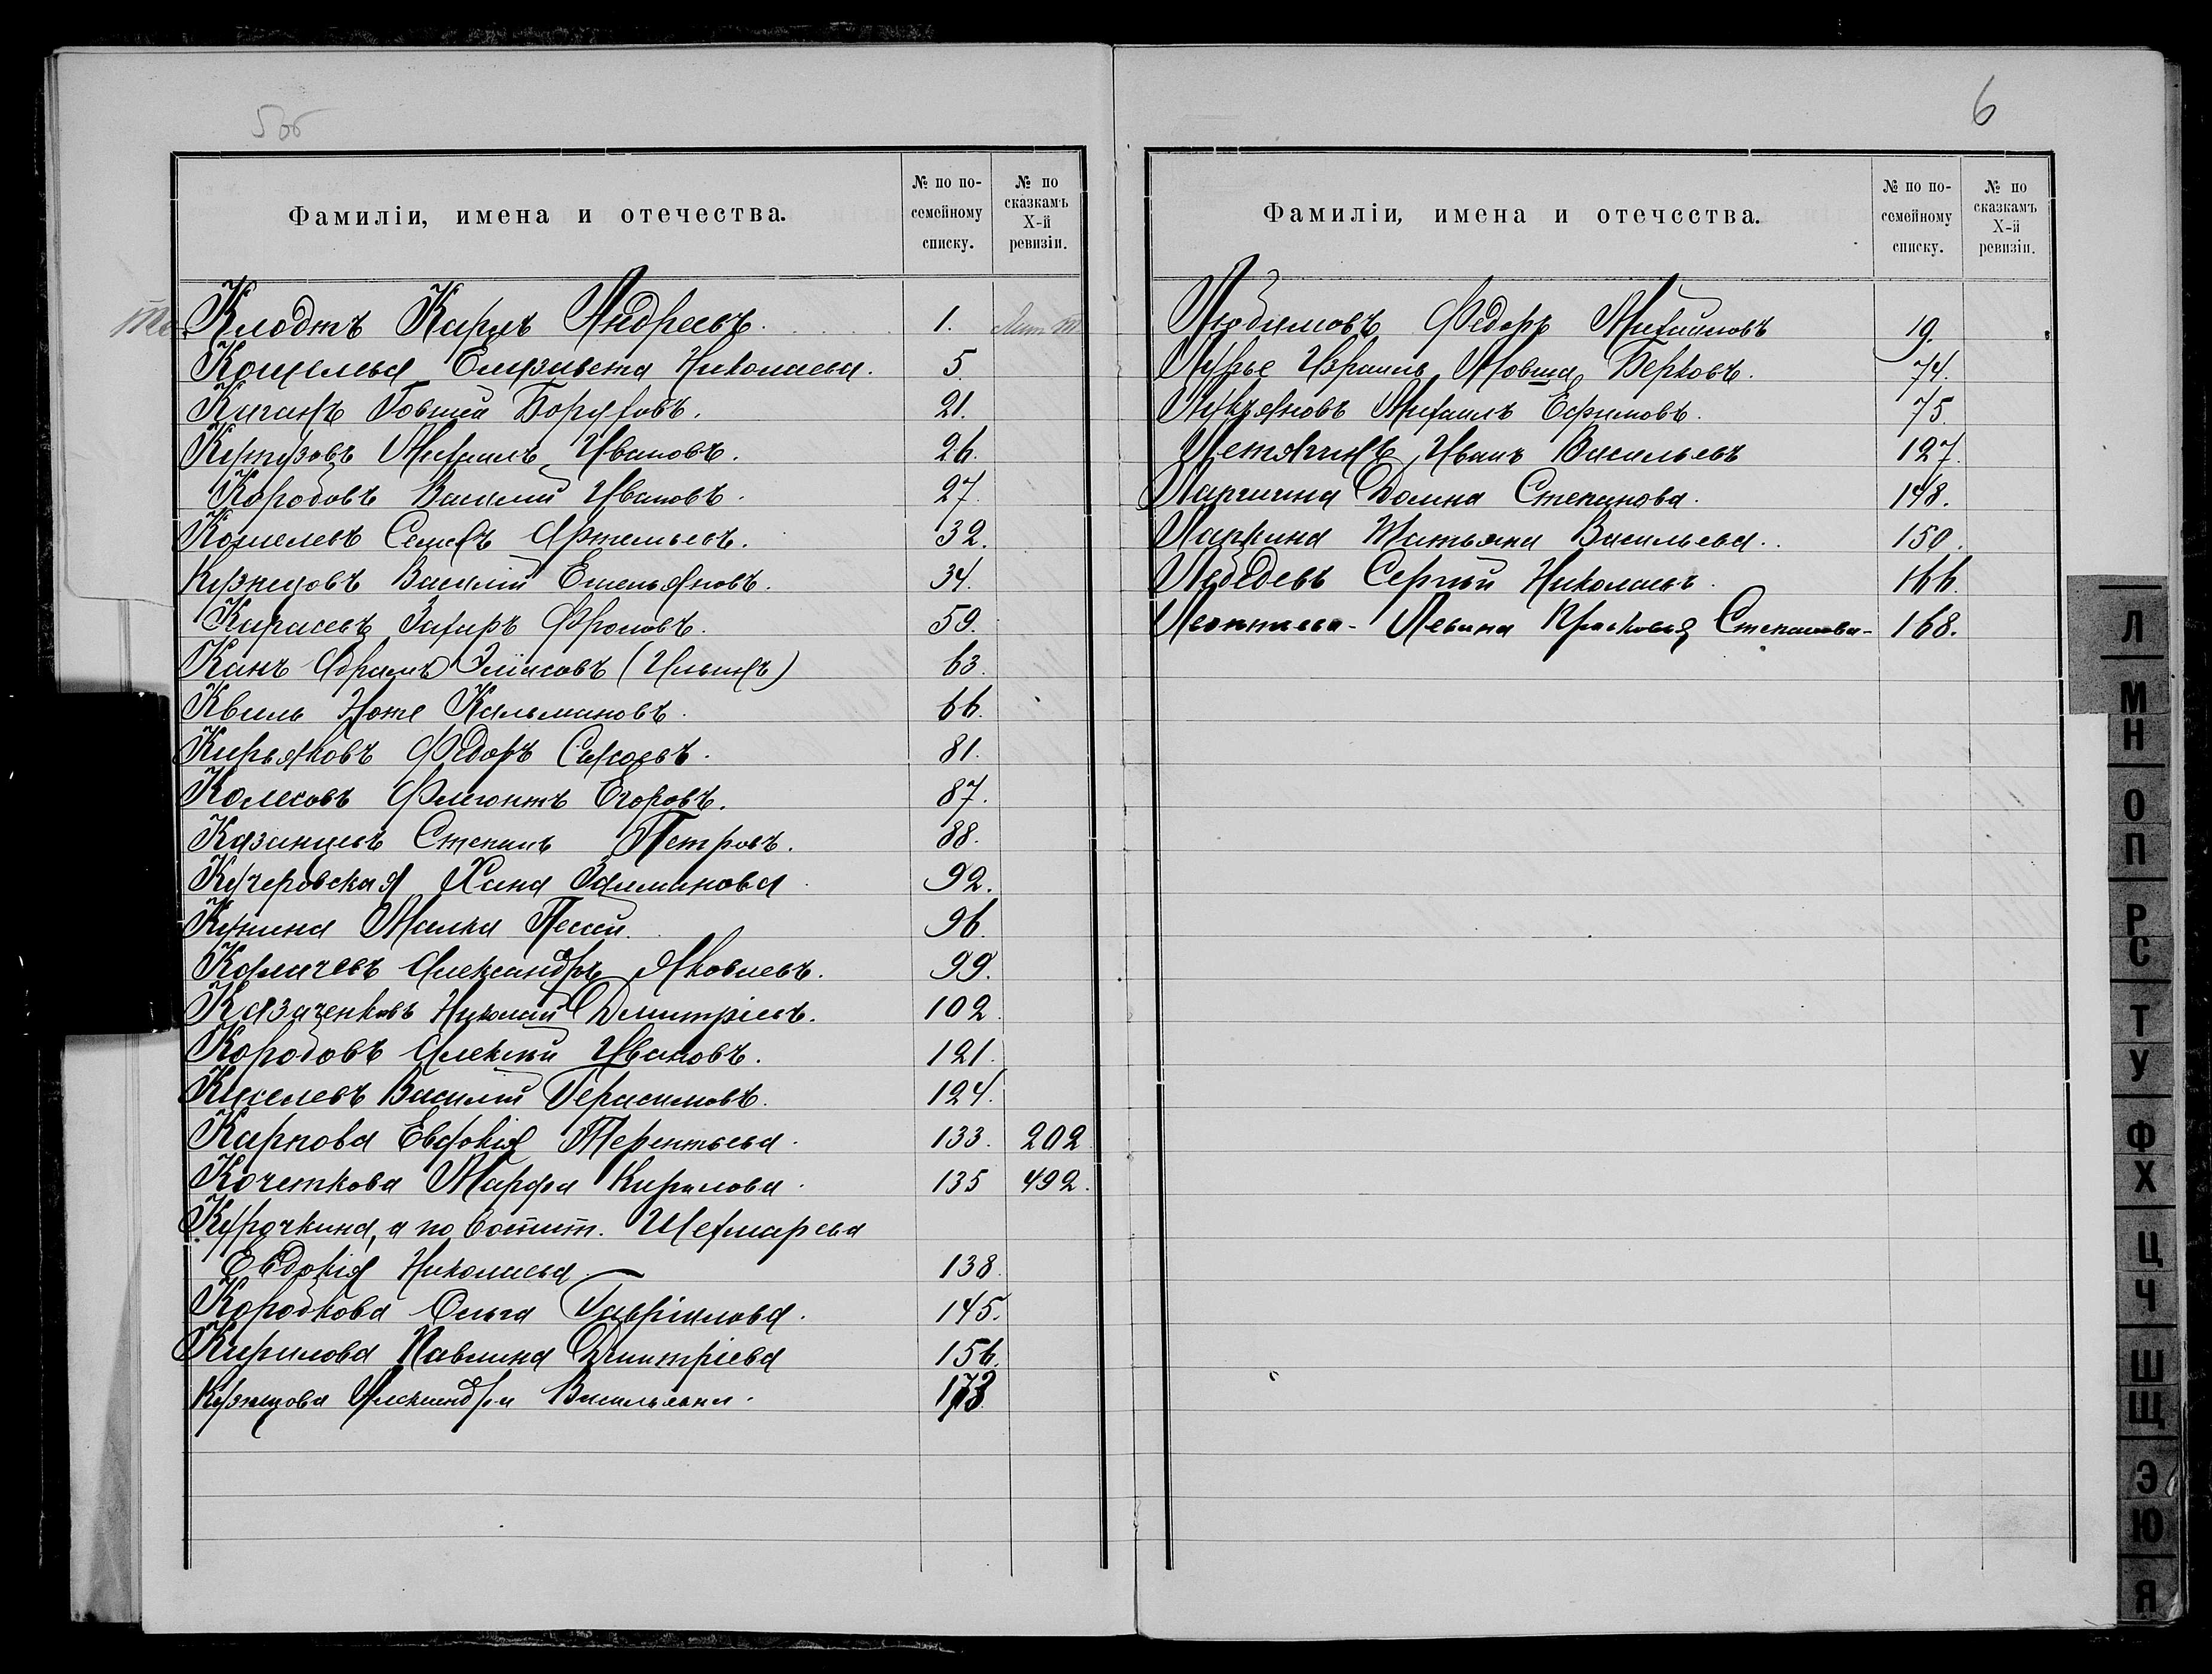 5об
Фамиліи, имена и отечества.
№ по по-
семейному
списку.
№ по
сказкамъ
X-й
ревизіи.
Клодтъ Карлъ Андреевъ. 1.
Кощелева Елизавета Николаева. 5
Каганъ Товшей Боруховъ. 21.
Картузовъ Михаилъ Ивановъ. 26.
Коробовъ Василій Ивановъ. 27.
Кошелевъ Семенъ Артемьевъ. 32.
Кузнецовъ Василій Емельяновъ. 34.
Карасевъ Захаръ Фроловъ. 59.
Канъ Абрамъ Эліасовъ (Ильинъ) 63.
Квиль Ноте Кальмановъ. 66.
Кирьяковъ Федоръ Сысоевъ. 81.
Колесовъ Флегонтъ Егоровъ. 87.
Казанцевъ Степанъ Петровъ. 88.
Кучеровская Хана Залманова 92.
Кунина Малка Песей. 96.
Калачевъ Александръ Яковлевъ. 99.
Казаченковъ Николай Дмитріевъ. 102.
Коробовъ Алексѣй Ивановъ. 121.
Киселевъ Василій Герасимовъ. 124.
Карпова Евдокія Терентьева. 133. 202
Кочеткова Марфа Кирилова. 135 492.
Курочкина, а по воспит. Шехмарева
Евдокія Николаева 138.
Коробкова Ольга Гавріилова. 145.
Кирилова Павлина Дмитріева 156.
Кузнецова Александра Васильевна. 173
6
Фамиліи, имена и отечества.
№ по по-
семейному
списку.
№ по
сказкамъ
X-й
ревизіи.
Любимовъ Федоръ Михайловъ 19.
Лурье Израиль Мовша Берковъ. 74.
Лукьяновъ Михаилъ Ефимовъ. 75.
Летягинъ Иванъ Васильевъ 127.
Ларгина Домна Степанова. 148.
Ларкина Татьяна Васильева. 150.
Лебедевъ Сергѣй Николаевъ. 166.
Леонтьева-Левина Прасковья Степанова- 168.
Л
М
Н
О
П
Р
С
Т
У
Ф
Х
Ц
Ч
Ш
Щ
Э
Ю
Я